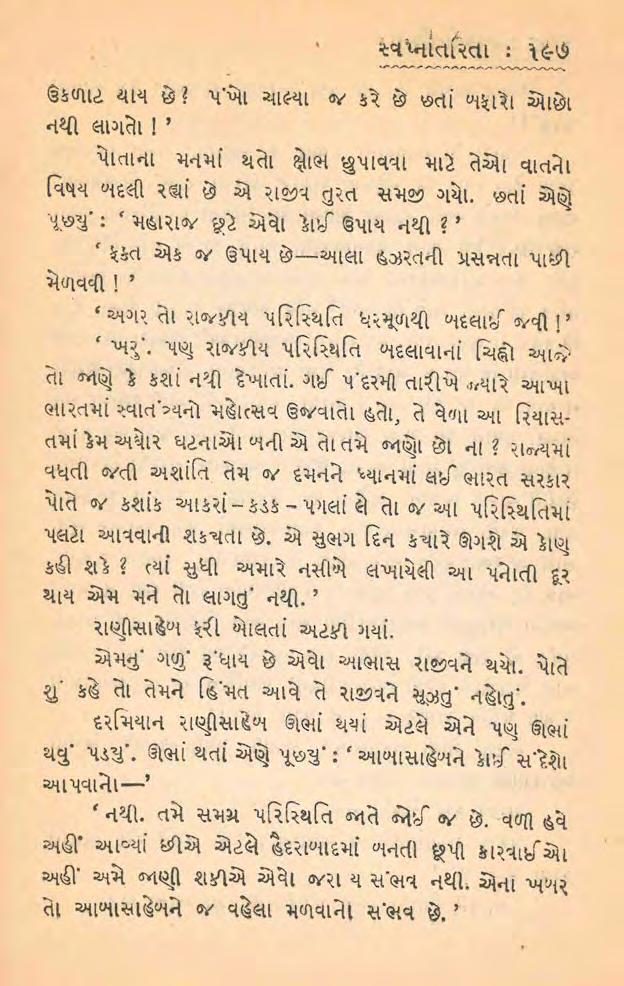 સ્વપ્નાંતરિતા : ૧૯૭
ઉકળાટ થાય છે? પંખો ચાલ્યા જ કરે છે છતાં બફારો ઓછો
નથી લાગતો !’
પોતાના મનમાં થતો ક્ષોભ છુપાવવા માટે તેઓ વાતનો
વિષય બદલી રહ્યાં છે એ રાજીવ તુરત સમજી ગયો. છતાં એણે
પૂછયું : ‘ મહારાજ છૂટે એવો કોઈ ઉપાય નથી ?’
‘ ફક્ત એક જ ઉપાય છે—આલા હઝરતની પ્રસન્નતા પાછી
મેળવવી ! ’
‘અગર તો રાજકીય પરિસ્થિતિ ધરમૂળથી બદલાઈ જવી !’
‘ ખરું. પણ રાજકીય પરિસ્થિતિ બદલાવાનાં ચિહ્નો આજે
તો જાણે કે કશાં નથી દેખાતાં. ગઈ પંદરમી તારીખે જ્યારે આખા
ભારતમાં સ્વાતંત્ર્યનો મહોત્સવ ઉજવાતો હતો, તે વેળા આ રિયાસ-
તમાં કેમ અઘોર ઘટનાઓ બની એ તો તમે જાણો છો ના ? રાજ્યમાં
વધતી જતી અશાંતિ તેમ જ દમનને ધ્યાનમાં લઈ ભારત સરકાર
પોતે જ કશાંક આકરાં – કડક – પગલાં લે તો જ આ પરિસ્થિતિમાં
પલટો આવવાની શકચતા છે. એ સુભગ દિન કચારે ઊગશે એ કોણ
કહી શકે ? ત્યાં સુધી અમારે નસીબે લખાયેલી આ પનોતી દૂર
થાય એમ મને તો લાગતું નથી.’
રાણીસાહેબ ફરી બોલતાં અટકી ગયાં.
એમનું ગળું રૂંધાય છે એવો આભાસ રાજીવને થયો. પોતે
શું કહે તો તેમને હિંમત આવે તે રાજીવને સૂઝતું નહોતું.
દરમિયાન રાણીસાહેબ ઊભાં થયાં એટલે એને પણ ઊભાં
થવું પડયું. ઊભાં થતાં એણે પૂછયું : ‘આબાસાહેબને કોઈ સંદેશો
આપવાનો—’
‘નથી. તમે સમગ્ર પરિસ્થિતિ જાતે જોઈ જ છે. વળી હવે
અહીં આવ્યાં છીએ એટલે હૈદરાબાદમાં બનતી છૂપી કારવાઈઓ
અહીં અમે જાણી શકીએ એવો જરા ય સંભવ નથી. એના ખબર
તો આબાસાહેબને જ વહેલા મળવાનો સંભવ છે.’